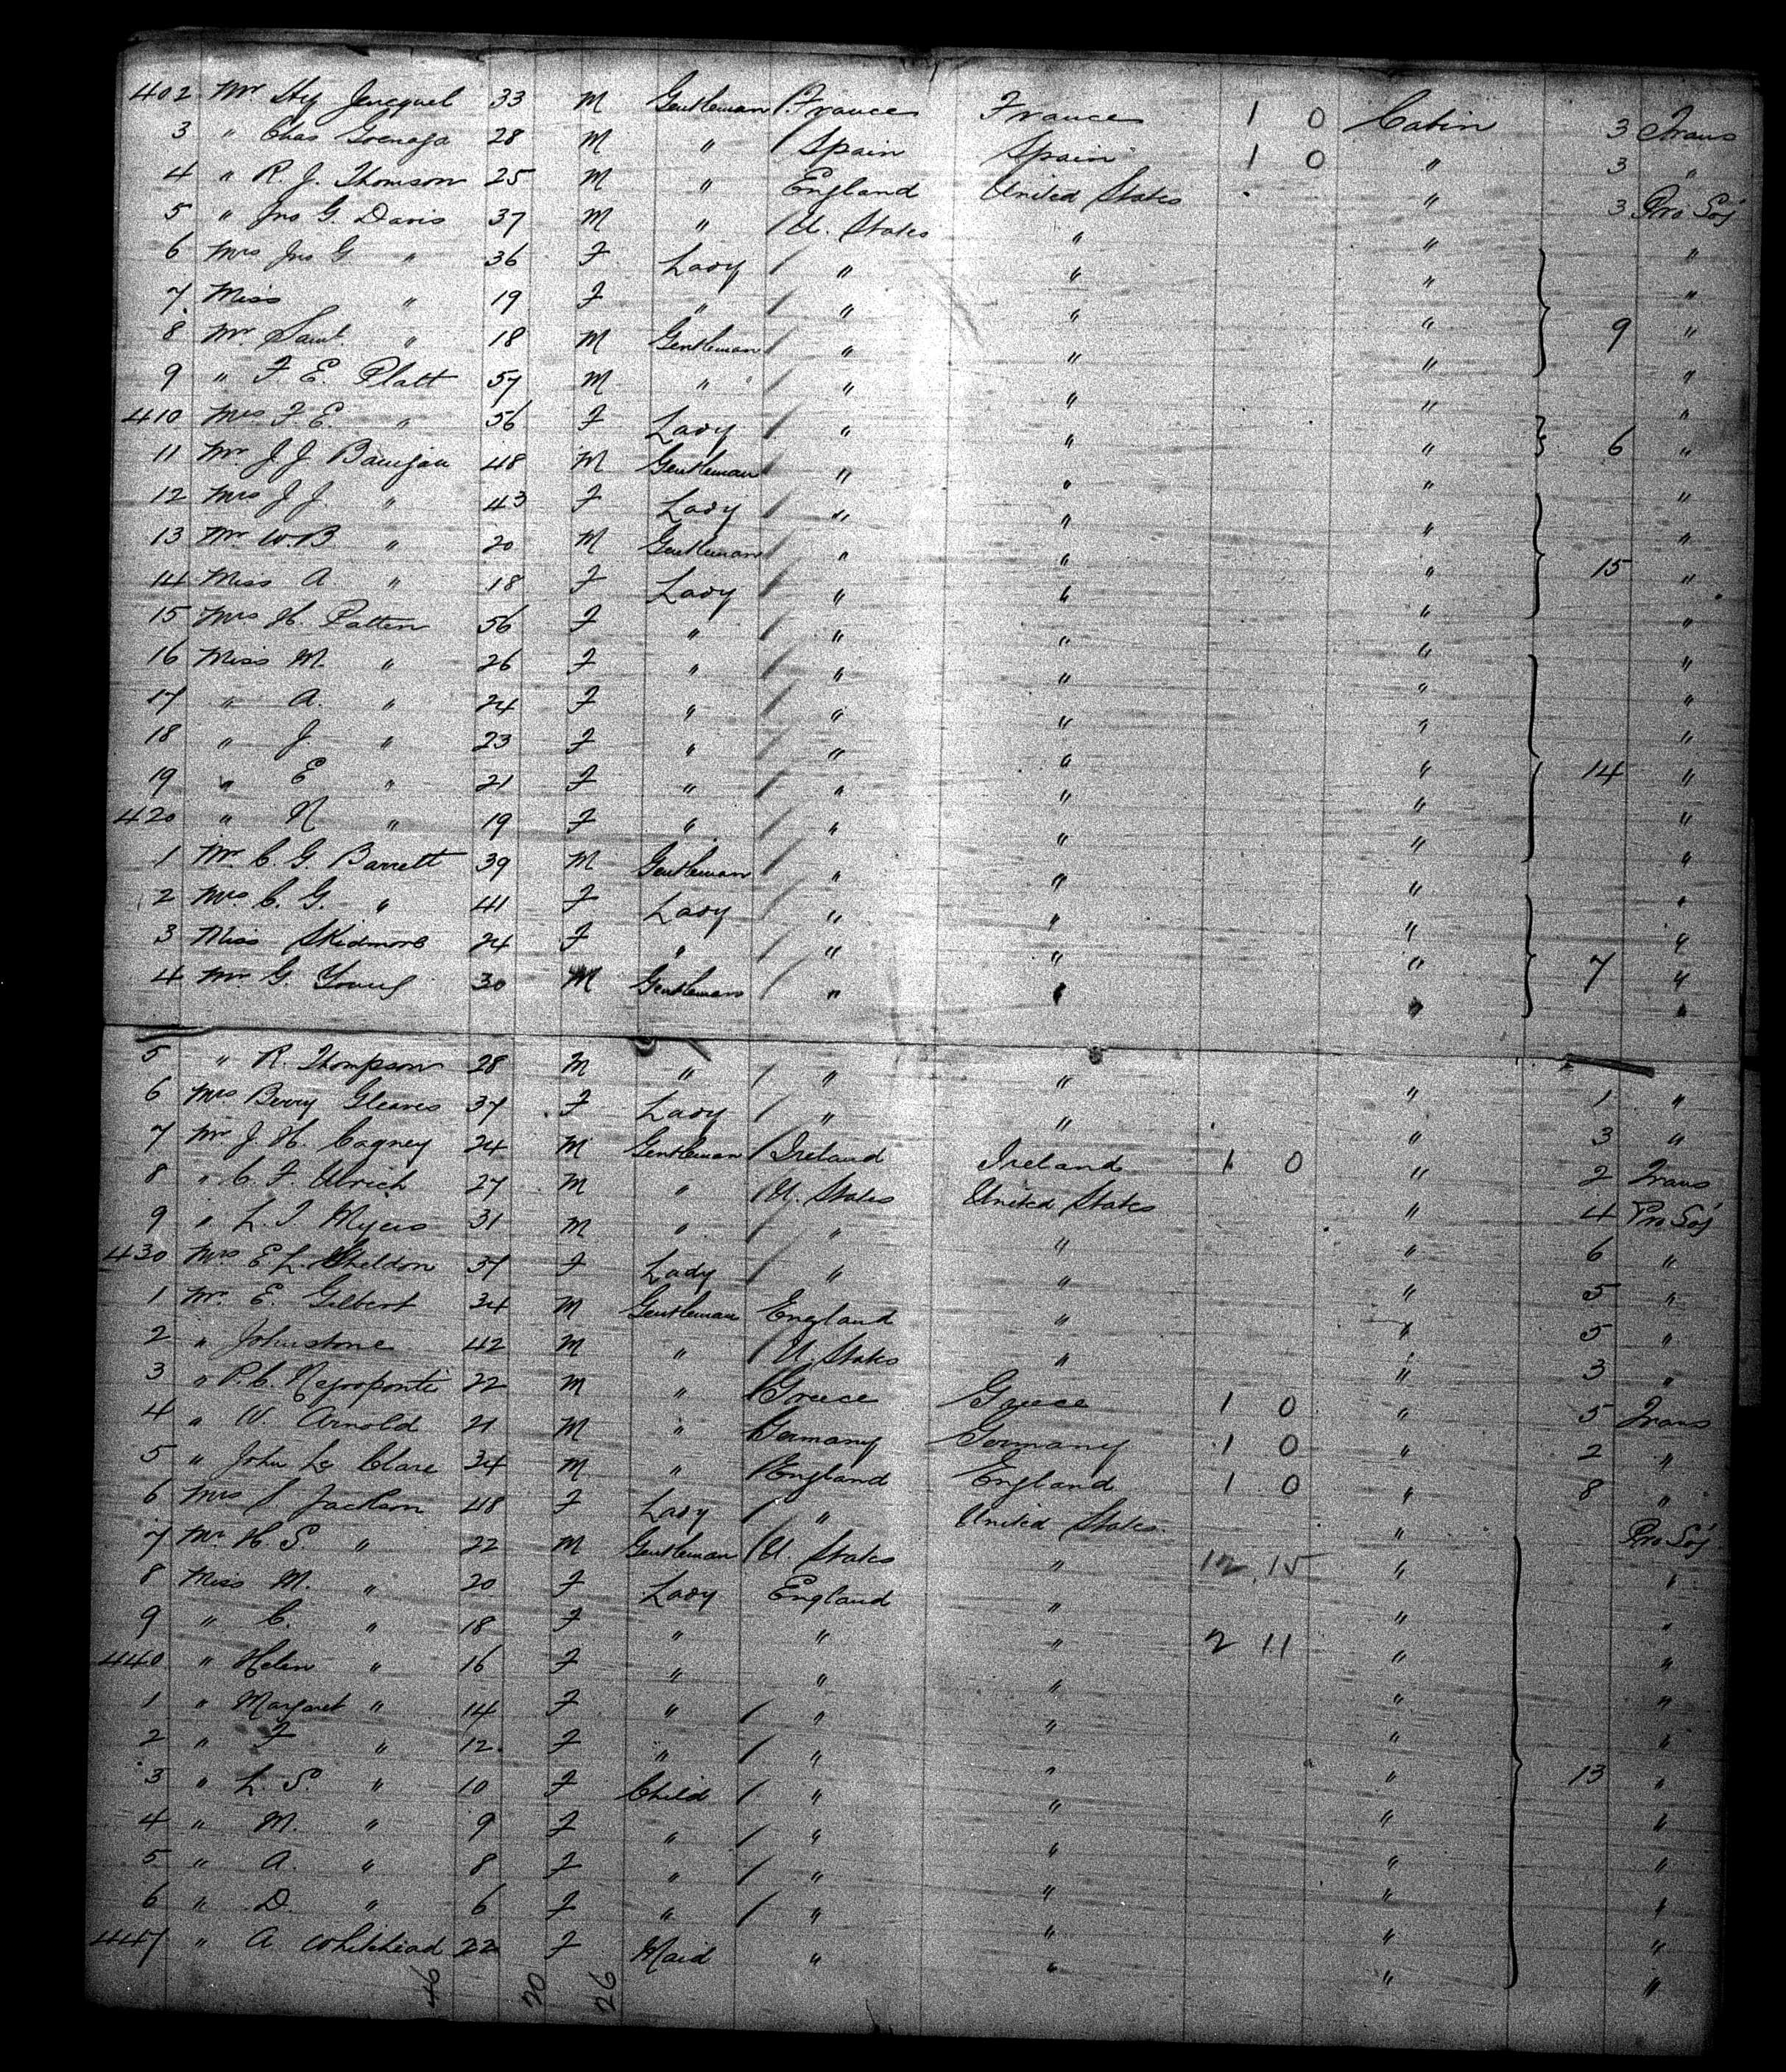 402 Mr Hy Jencquel 33 M Gentleman / France France 1 0 Cabin 3 Trans
3 " Chas 28 M " / Spain Spain 1 0 " 3 "
4 " R. J. Thomson 25 M " England United States " 3 Pro Soj
5 " Jno G. Davis 37 M " / U. States " " "
6 Mrs Jno G " 36 F Lady / " " " "
7 Miss " 19 F " / " " " "
8 Mr. Saml. " 18 M Gentleman / " " " 9 "
9 " F. E. Platt 57 M " / " " " "
410 Mrs F. E. " 56 F Lady / " " " 6 "
11 Mr J. J. Banigan 48 M Gentleman / " " " "
12 Mrs J. J. " 43 F Lady / " " " "
13 Mr W. B. " 20 M Gentleman / " " " 15 "
14 Miss A " 18 F Lady / " " " "
15 Mrs H. Patten 56 F " / " " " "
16 Miss M. " 26 F " / " " " "
17 " A. " 24 F " / " " " "
18 " J. " 23 F " / " " " "
19 " E " 21 F " / " " " 14 "
420 " N " 19 F " / " " " "
1 Mr. C. G. Barrett 39 M Gentleman / " " " "
2 Mrs C. G. " 41 F Lady / " " " "
3 Miss Skidmore 24 F " / " " " 7 "
4 Mr. G. Young 30 M Gentleman / " " " "
5 " R. Thompson 28 M " / " " " 1 "
6 Mrs Berry Gleaves 37 F Lady / " " " 3 "
7 Mr J. H. Cagney 24 M Gentleman / Ireland Ireland 1 0 " 2 Trans
8 " C. F. Ulrich 27 M " / U. States United States " 4 Pro Soj
9 " L. I. Myers 31 M " / " " " 6 "
430 Mrs E. L. Sheldon 37 F Lady / " " " 5 "
1 Mr. E. Gilbert 34 M Gentleman England " " 5 "
2 " Johnstone 42 M " / U. States " " 3 "
3 " P. C. Negroponte 22 M " / Greece Greece 1 0 " 5 Trans
4 " W. Arnold 21 M " / Germany Germany 1 0 " 2 "
5 " John Le Clare 34 M " / England England 1 0 " 8 "
6 Mrs S Jackson 48 F Lady / " United States " Pro Soj
7 Mr. H. S. " 22 M Gentleman / U. States " 12 15 " "
8 Miss M. " 20 F Lady England " " "
9 " C. " 18 F " " " 2 11 " "
440 " Helen " 16 F " " " " "
1 " Margaret " 14 F " / " " " "
2 " F " 12 F " / " " " "
3 " L. S. " 10 F Child / " " " 13 "
4 " M. " 9 F " / " " " "
5 " A. " 8 F " / " " " "
6 " D. " 6 F " / " " " "
447 " A. Whitehead 22 F Maid " " " "
46 20 26